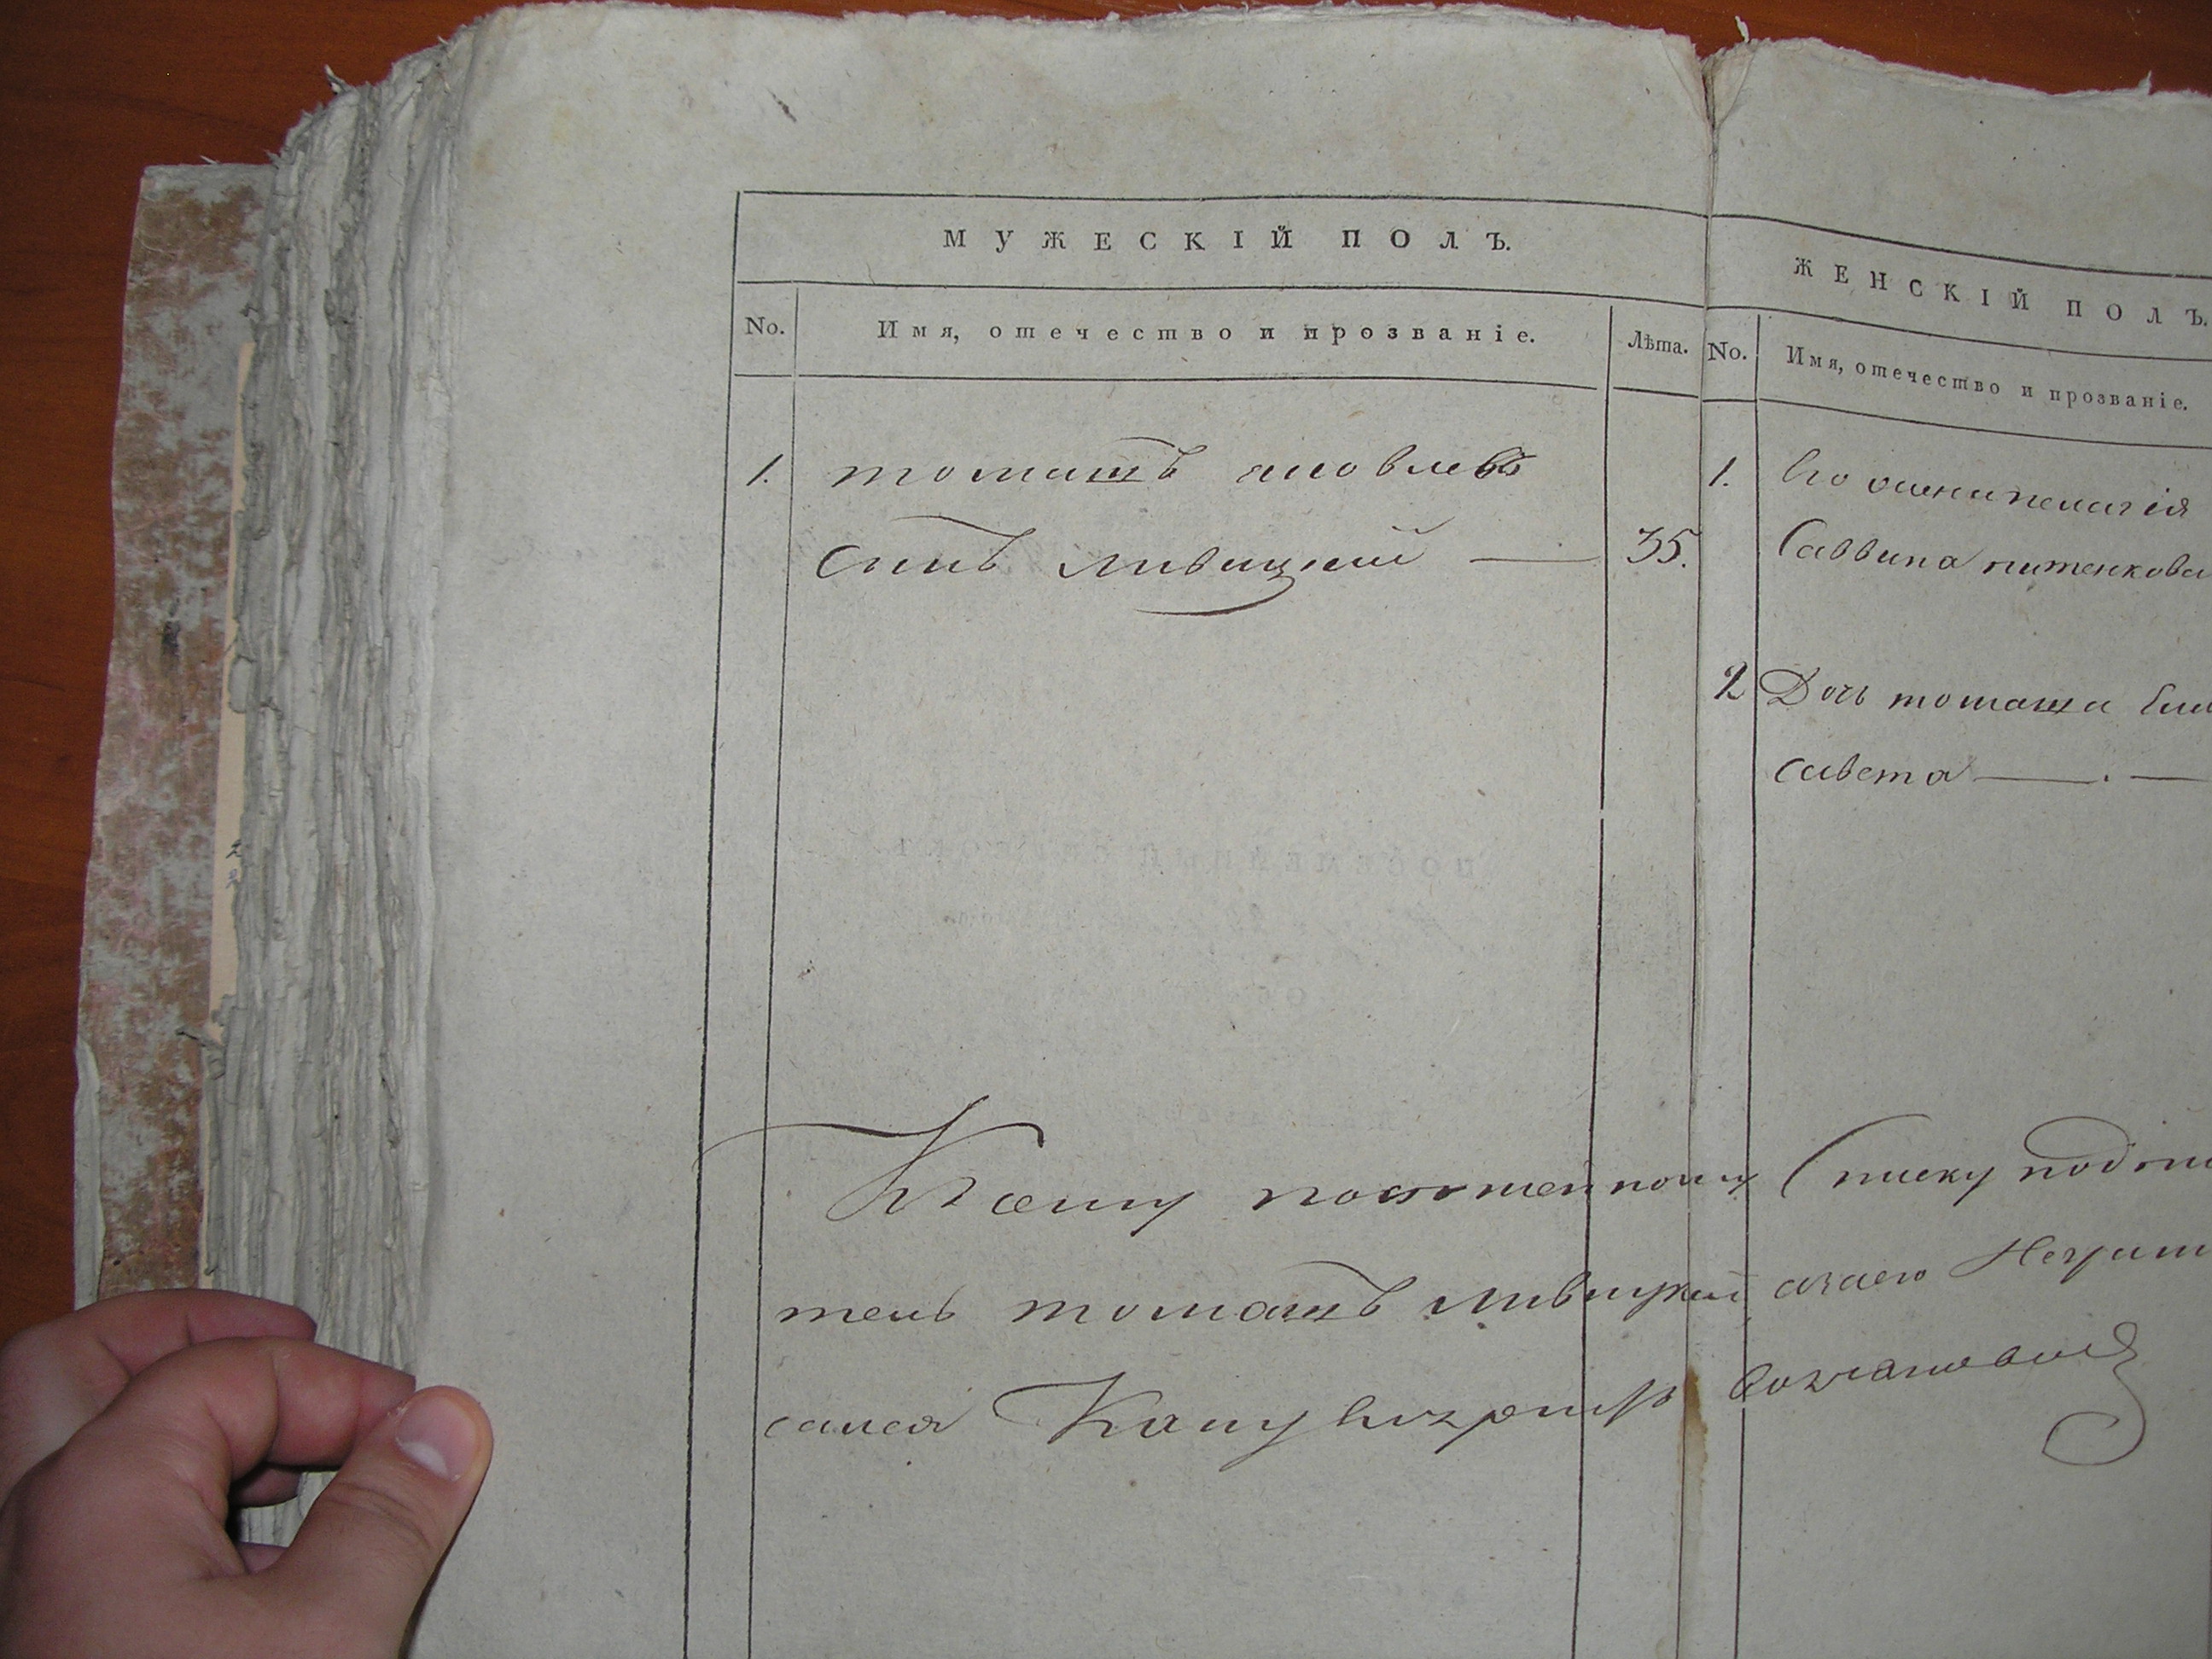 МУЖЕСКІЙ ПОЛЪ.
No. Имя, отечество и прозваніе. Лѣта.
1. томашъ яковлевъ
Синъ Ливицкий — 35.
ЖЕНСКІЙ ПОЛЪ.
No. Имя, отечество и прозваніе.
1. Его жена пелагія
Саввина питенкова
2 Дочь томаша Ели
савета — . —
К сему посемейному Списку подпи
тель томашъ Ливицкий а за его Неграм
сался